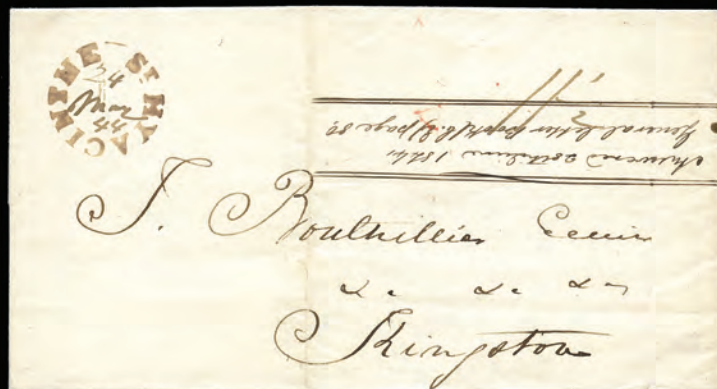 ST HYACINTHE
24
May
44
11
Answered 20th June 1844
General letter Book (C.L) page 80
T. Bouthillier Ecuier
&c &c &c
Kingston